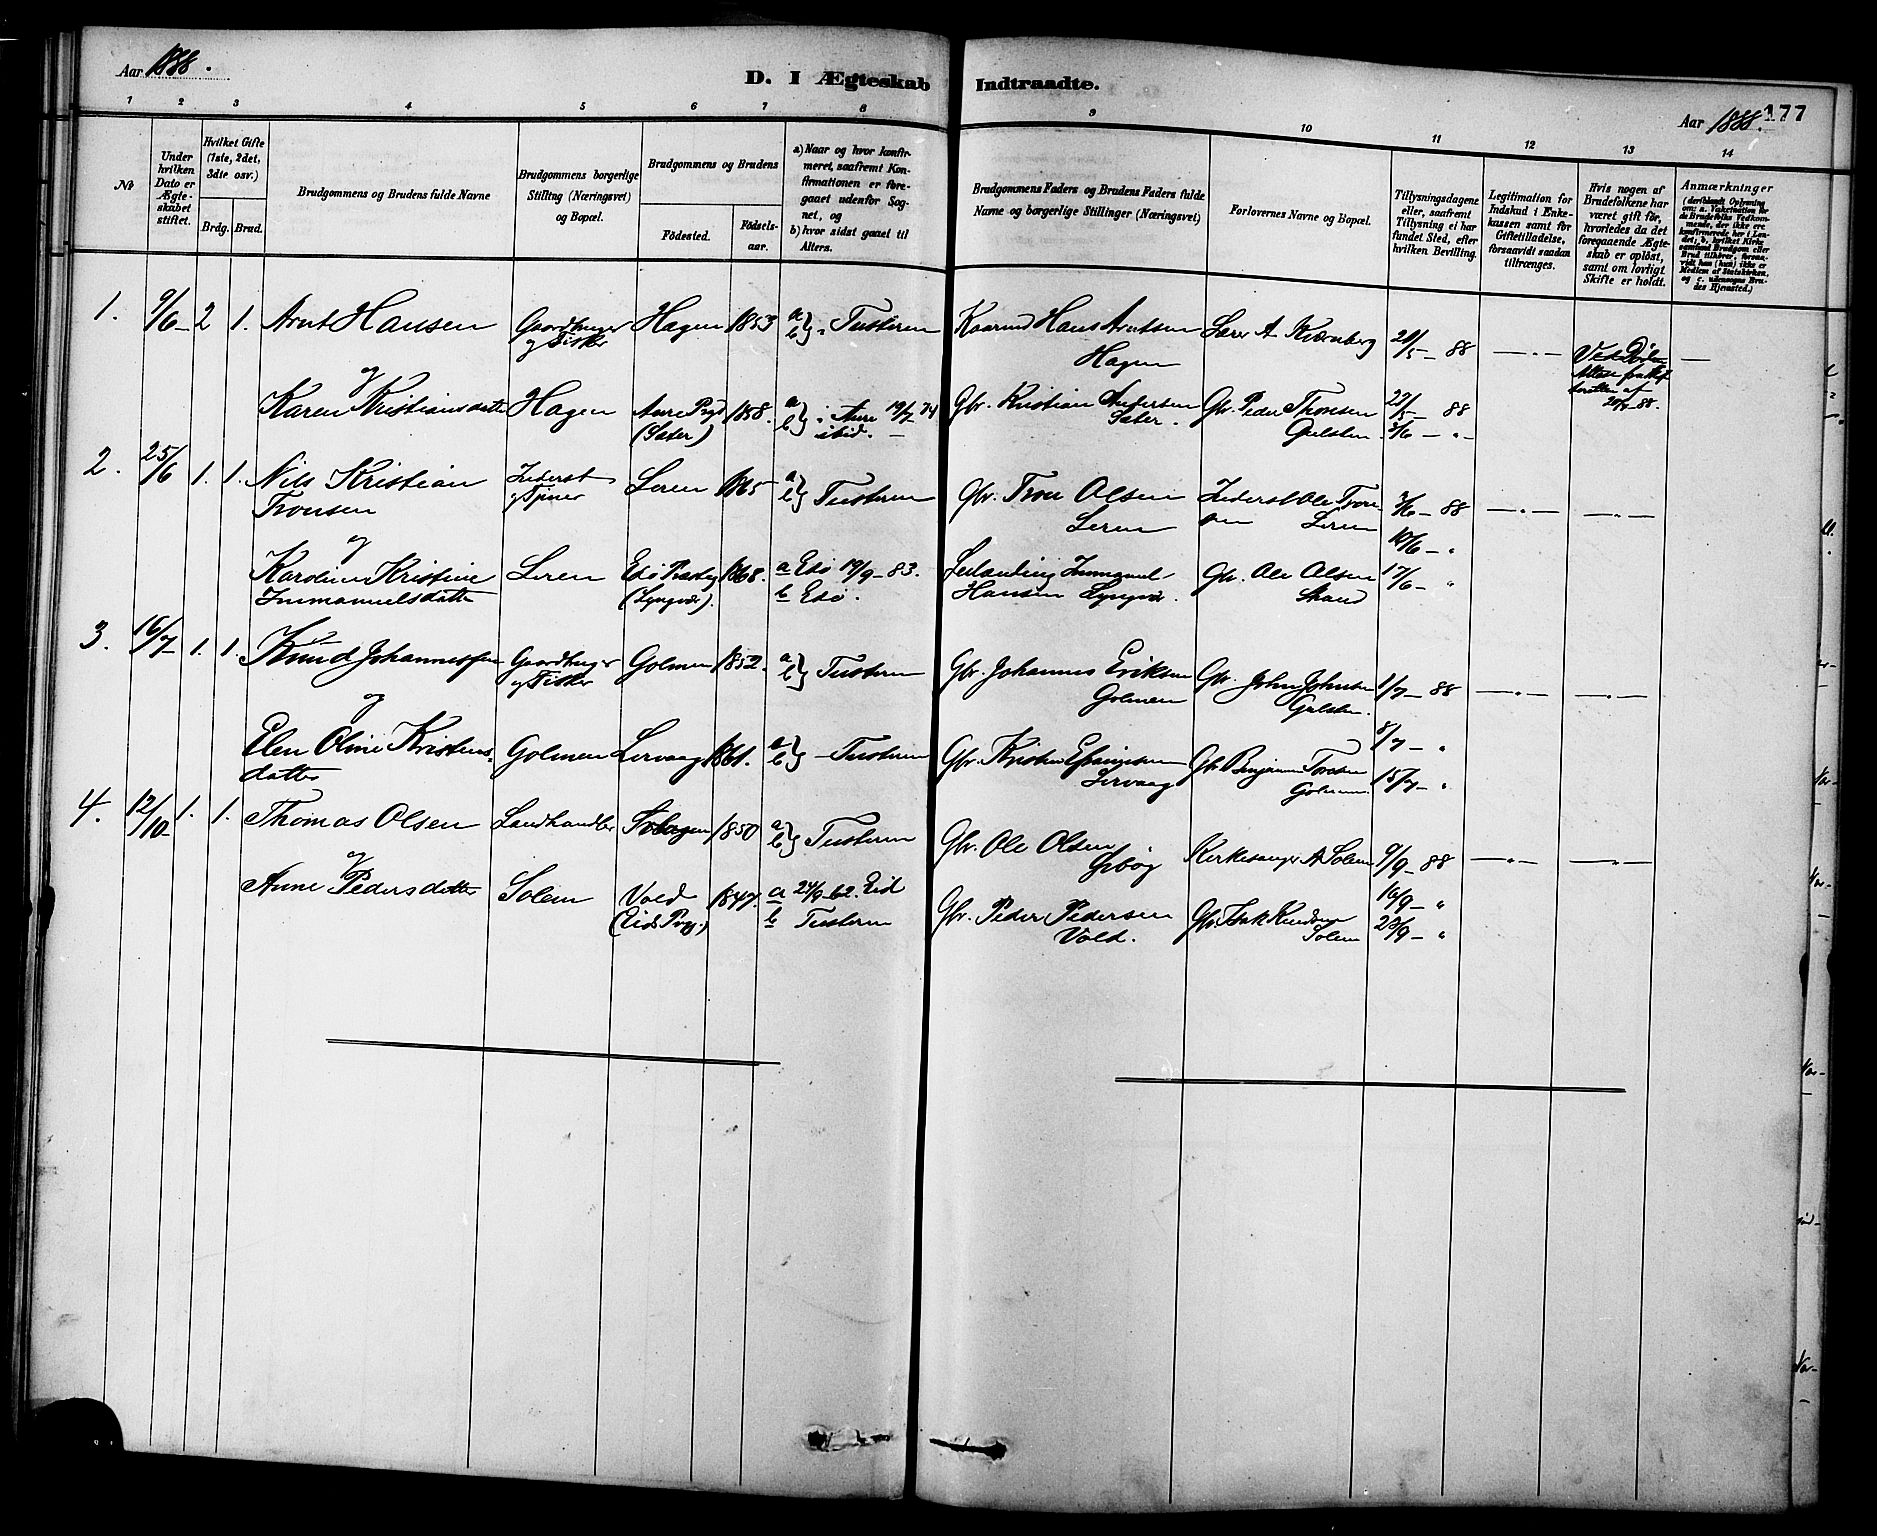 Aar 1888.
D. I Ægteskab Indtraadte.
Aar 1888. 177
1 2 3 4 5 6 7 8 9 10 11 12 13 14
No
Under hvilken Dato er Ægteskabet stiftet.
Hvilket Gifte (1ste, 2det, 3die osv.)
Brdg. Brud.
Brudgommens og Brudens fulde Navne
Brudgommens borgerlige Stilling (Næringsvei) og Bopæl.
Brudgommens og Brudens
Fødested.
Fødselsaar.
a) Naar og hvor konfirmeret, saafremt Konfirmationen er foregaaet udenfor Sognet, og
b) hvor sidst gaaet til Alters.
Brudgommens Faders og Brudens Faders fulde Navne og borgerlige Stillinger (Næringsvei)
Forlovernes Navne og Bopæl.
Tillysningsdagene eller, saafremt Tillysning ei har fundet Sted, efter hvilken Bevilling.
Legitimation for Indskud i Enkekassen samt for Giftetilladelse, forsaavidt saadan tiltrænges.
Hvis nogen af Brudefolkene har været gift før, hvorledes da det foregaaende Ægteskab er opløst, samt om lovligt Skifte er holdt.
Anmærkninger
1. 9/6 2 1. Arnt Hansen Gaardbruger og Fisker Hagen 1853 a b Tusteren Kaarmd Hans Arntsen Hagen Lærer A Kvernberg 20/5 88 — Ved Døden Attest fra
og
Karen Kristiansdatter Hagen Aure Prgd (Sæter) 1858. a b Aure 74 ibid. Gbr. Kristian Andersen Sæter. Gbr. Peder Thonsen Gulsten 27/5 88
3/6 — "
2. 25/6 1. 1. Nils Kristian Tronsen Inderst og Tjener Leren 1865 a b Tusteren Gbr. Tron Olsen Leren Inderst Ole Tronsen Leren 3/6 88
10/6 — "
og
Karoline Kristine Immanuelsdatter Leren Edø Præstg (Lyngvær). 1868. a Edø 19/9 83. b Edø. Immanuel Hansen Lyngvær. Gbr. Ole Olsen Strand 17/6 "
3. 16/7 1. 1. Knud Johannessen Gaardbruger og Fisker Golmen 1852. a b Tusteren Gbr. Johannes Eriksen Golmen Gbr. John Johnsen Gulsten. 1/7 88
og
8/7 — "
Elen Oline Kristensdatter Golmen Lervaag 1861. a b Tusteren Gbr. Kristen Lervaag Gbr. Benjamin Golmen. 15/7 "
4. 12/10 1. 1. Thomas Olsen Landhandler 1850 a b Tusteren Gbr. Ole Olsen Kirkesanger A Solem 9/9 88
og
16/9 — "
Anne Pedersdatter Solem Vold (Eids Prgj.) 1847. a 24/9 62. Eid b Tusteren Gbr. Peder Pedersen Vold. Gbr. Isak Knudsen Solem 23/9 — "